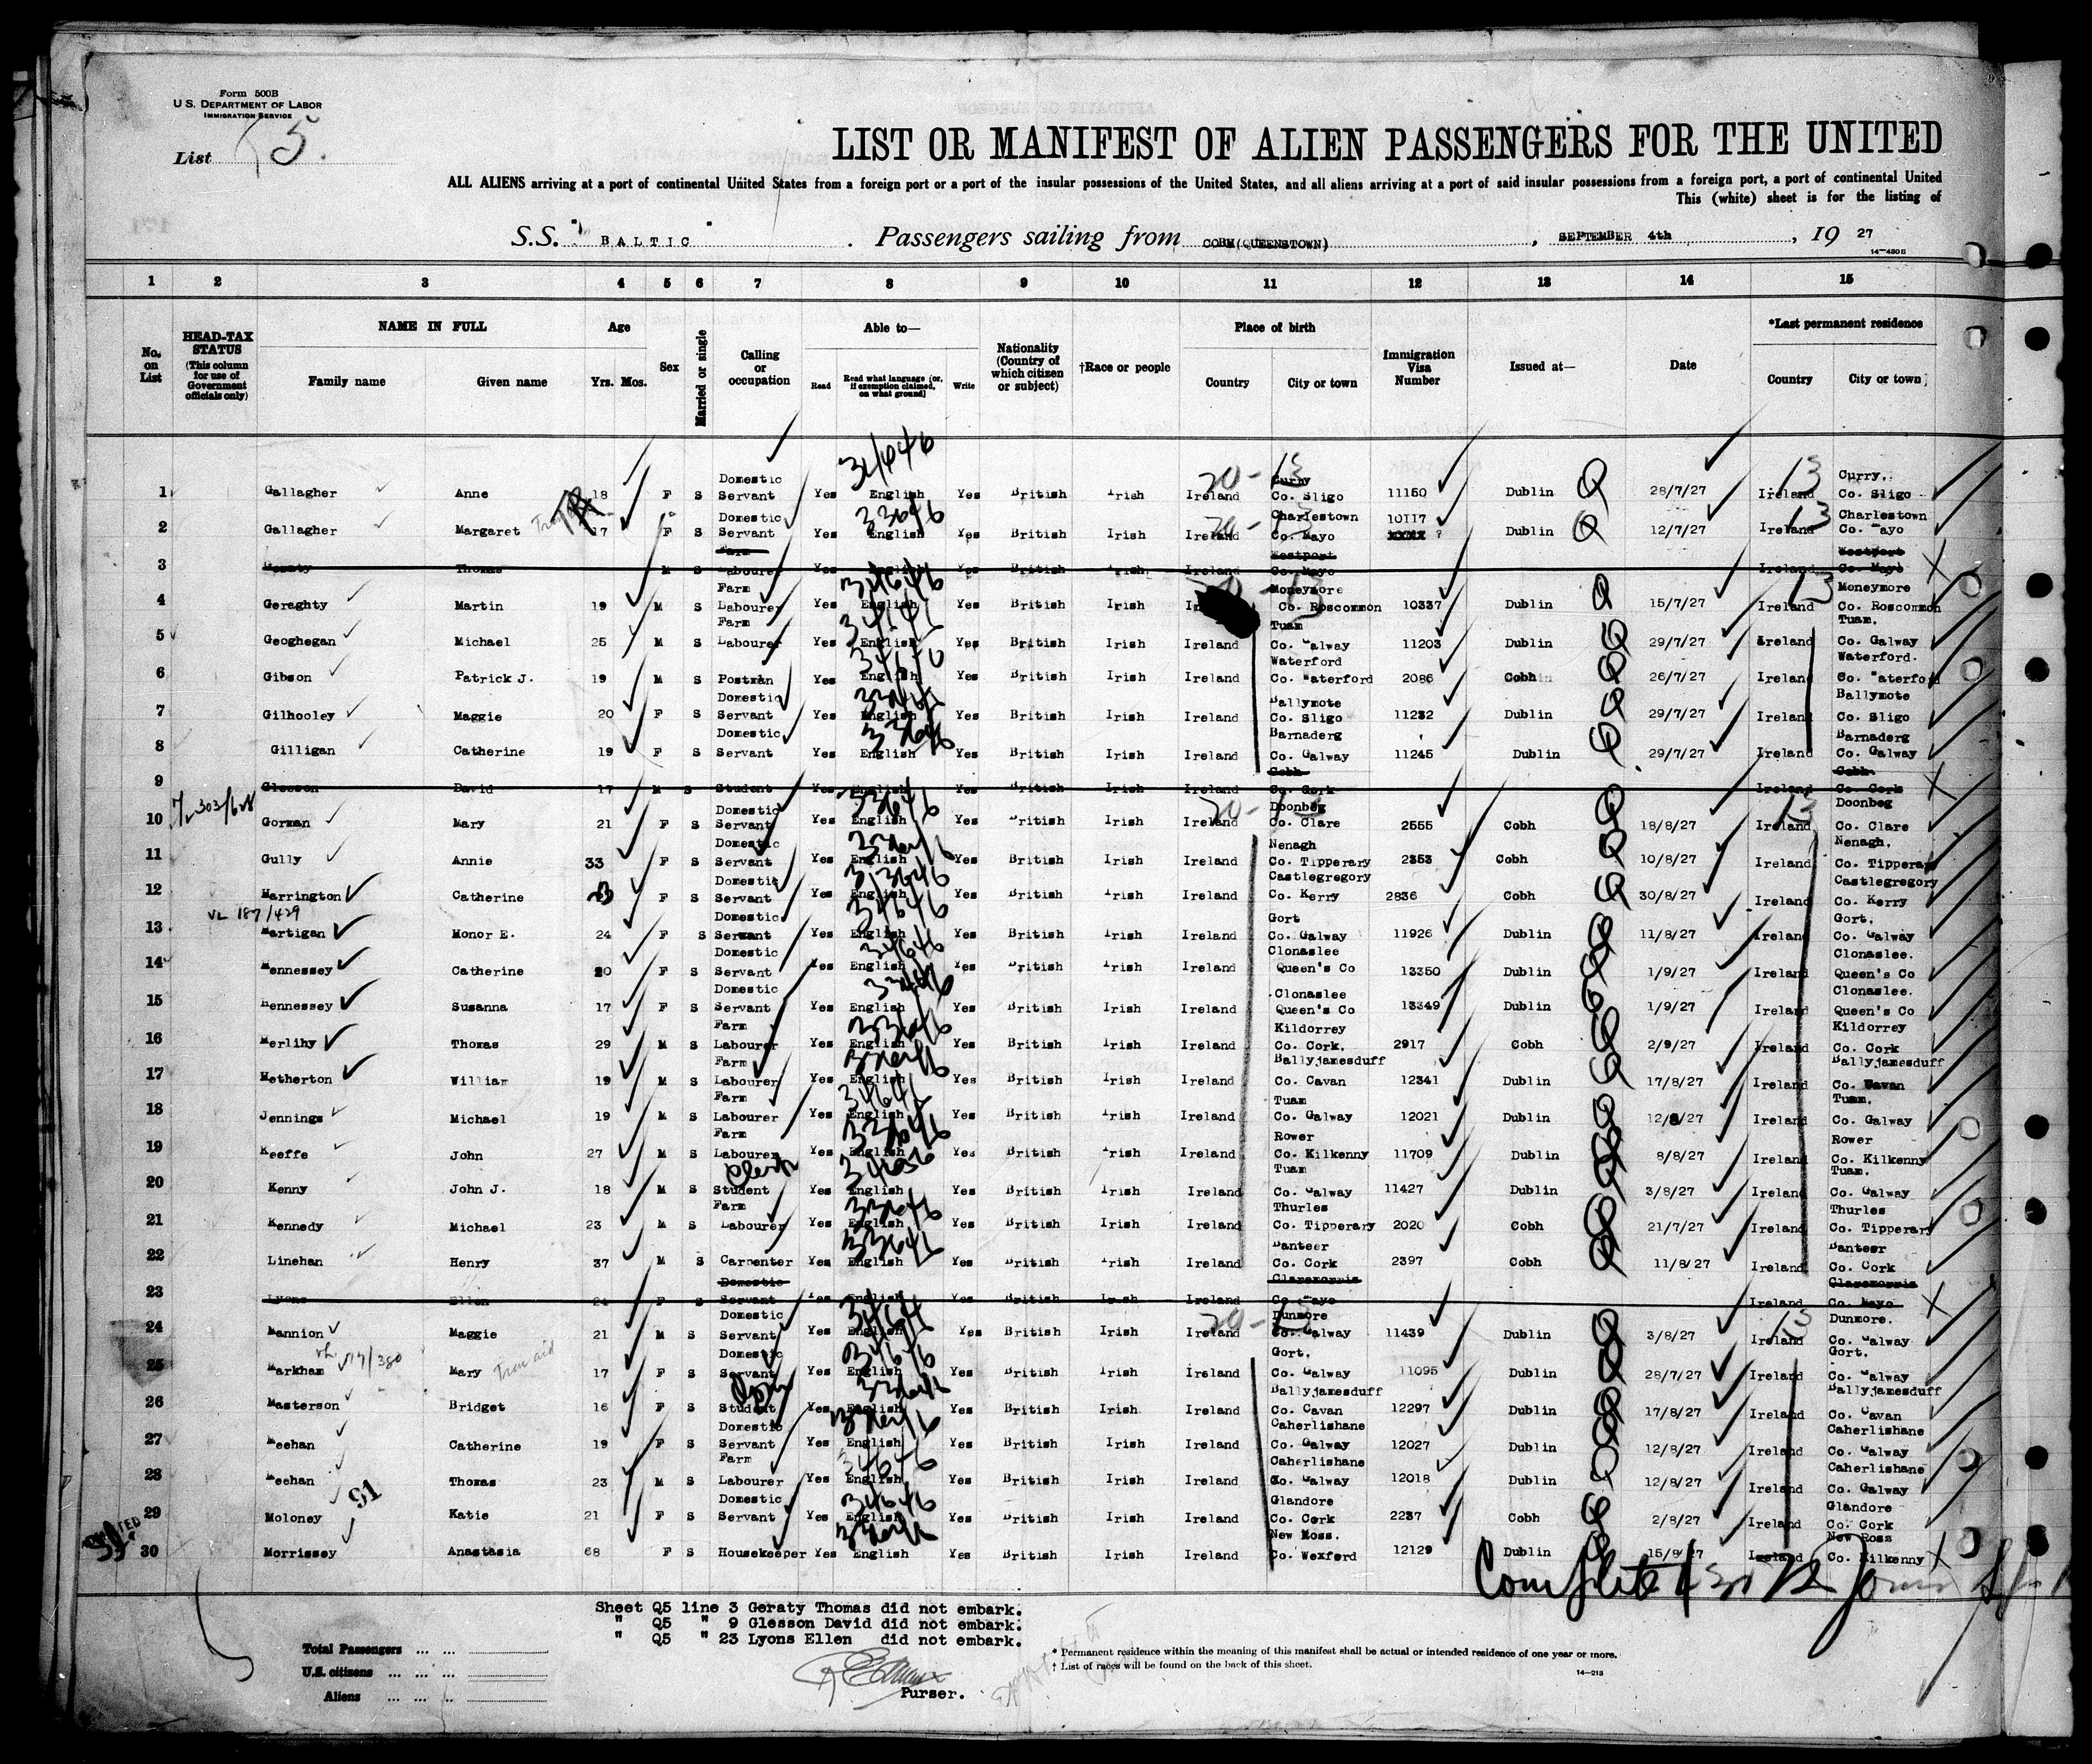 Form 500B
U.S. DEPARTMENT OF LABOR
IMMIGRATION SERVICE
List 5.
LIST OR MANIFEST OF ALIEN PASSENGERS FOR THE UNITED
ALL ALIENS arriving at a port of continental United States from a foreign port or a port of the insular possessions of the United States, and all aliens arriving at a port of said insular possessions from a foreign port, a port of continental United
This (white) sheet is for the listing of
S.S. "BALTIC" . Passengers sailing from COBH(QUEENSTOWN) , SEPTEMBER 4th , 19 27
14—430 B
1 2 3 4 5 6 7 8 9 10 11 12 13 14 15
No. on List
HEAD-TAX STATUS (This column for use of Government officials only)
NAME IN FULL
Family name Given name
Age
Yrs. Mos.
Sex
Married or single
Calling or occupation
Able to—
Read Read what language (or, if exemption claimed, on what ground) Write
Nationality (Country of which citizen or subject)
†Race or people
Place of birth
Country City or town
Immigration Visa Number
Issued at—
Date
*Last permanent residence
Country City or town
1 Gallagher Anne 18 F S Domestic Servant Yes English Yes British Irish Ireland Curry Co. Sligo 11150 Dublin 28/7/27 Ireland Curry. Co. Sligo
2 Gallagher Margaret 17 F S Domestic Servant Yes English Yes British Irish Ireland Charlestown Co. Mayo 10117 Dublin 12/7/27 Ireland Charlestown Co. Mayo
3 Thomas M S Farm Labourer Yes English Yes British Irish Ireland Westport Co. Mayo Ireland Westport Co. Mayo
4 Geraghty Martin 19 M S Farm Labourer Yes English Yes British Irish Moneymore Co. Roscommon 10337 Dublin 15/7/27 Ireland Moneymore Co. Roscommon
5 Geoghegan Michael 25 M S Farm Labourer Yes English Yes British Irish Ireland Tuam Co. Galway 11203 Dublin 29/7/27 Ireland Tuam. Co. Galway
6 Gibson Patrick J. 19 M S Postman Yes English Yes British Irish Ireland Waterford Co. Waterford 2086 Cobh 26/7/27 Ireland Waterford. Co. Waterford
7 Gilhooley Maggie 20 F S Domestic Servant Yes English Yes British Irish Ireland Ballymote Co. Sligo 11232 Dublin 29/7/27 Ireland Ballymote Co. Sligo
8 Gilligan Catherine 19 F S Domestic Servant Yes English Yes British Irish Ireland Barnaderg Co. Galway 11245 Dublin 29/7/27 Ireland Barnaderg Co. Galway
9 Gleeson David 17 M S Student Yes English Yes British Irish Ireland Cobh Co. Cork Ireland Cobh. Co. Cork
10 Gorman Mary 21 F S Domestic Servant Yes English Yes British Irish Ireland Doonbeg Co. Clare 2555 Cobh 18/8/27 Ireland Doonbeg Co. Clare
11 Gully Annie 33 F S Domestic Servant Yes English Yes British Irish Ireland Nenagh Co. Tipperary 2353 Cobh 10/8/27 Ireland Nenagh. Co. Tipperary
12 Harrington Catherine F S Domestic Servant Yes English Yes British Irish Ireland Castlegregory Co. Kerry 2836 Cobh 30/8/27 Ireland Castlegregory Co. Kerry
VL 187/429
13 Hartigan Honor E. 24 F S Domestic Servant Yes English Yes British Irish Ireland Gort Co. Galway 11926 Dublin 11/8/27 Ireland Gort. Co. Galway
14 Hennessey Catherine 20 F S Domestic Servant Yes English Yes British Irish Ireland Clonaslee Queen's Co 13350 Dublin 1/9/27 Ireland Clonaslee. Queen's Co
15 Hennessey Susanna 17 F S Domestic Servant Yes English Yes British Irish Ireland Clonaslee Queen's Co 13349 Dublin 1/9/27 Ireland Clonaslee. Queen's Co
16 Herlihy Thomas 29 M S Farm Labourer Yes English Yes British Irish Ireland Kildorrey Co. Cork. 2917 Cobh 2/9/27 Ireland Kildorrey Co. Cork
17 Hetherton William 19 M S Farm Labourer Yes English Yes British Irish Ireland Ballyjamesduff Co. Cavan 12341 Dublin 17/8/27 Ireland Ballyjamesduff Co. Cavan
18 Jennings Michael 19 M S Farm Labourer Yes English Yes British Irish Ireland Tuam Co. Galway 12021 Dublin 12/8/27 Ireland Tuam. Co. Galway
19 Keeffe John 27 M S Farm Labourer Yes English Yes British Irish Ireland Rower Co. Kilkenny 11709 Dublin 8/8/27 Ireland Rower Co. Kilkenny
20 Kenny John J. 18 M S Clerk Student Yes English Yes British Irish Ireland Tuam Co. Galway 11427 Dublin 3/8/27 Ireland Tuam. Co. Galway
21 Kennedy Michael 23 M S Farm Labourer Yes English Yes British Irish Ireland Thurles Co. Tipperary 2020 Cobh 21/7/27 Ireland Thurles Co. Tipperary
22 Linehan Henry 37 M S Carpenter Yes English Yes British Irish Ireland Banteer Co. Cork 2397 Cobh 11/8/27 Ireland Banteer Co. Cork
23 Lyons Ellen 21 F S Domestic Servant Yes English Yes British Irish Ireland Claremorris Co. Mayo Ireland Claremorris Co. Mayo
24 Mannion Maggie 21 M S Domestic Servant Yes English Yes British Irish Ireland Dunmore Co. Galway 11439 Dublin 3/8/27 Ireland Dunmore. Co. Galway
25 Markham Mary 17 F S Domestic Servant Yes English Yes British Irish Ireland Gort. Co. Galway 11095 Dublin 28/7/27 Ireland Gort. Co. Galway
26 Masterson Bridget 16 F S Student Yes English Yes British Irish Ireland Ballyjamesduff Co. Cavan 12297 Dublin 17/8/27 Ireland Ballyjamesduff Co. Cavan
27 Meehan Catherine 19 F S Domestic Servant Yes English Yes British Irish Ireland Caherlishane Co. Galway 12027 Dublin 12/8/27 Ireland Caherlishane Co. Galway
28 Meehan Thomas 23 M S Farm Labourer Yes English Yes British Irish Ireland Caherlishane Co. Galway 12018 Dublin 12/8/27 Ireland Caherlishane Co. Galway
91
29 Moloney Katie 21 F S Domestic Servant Yes English Yes British Irish Ireland Glandore Co. Cork 2237 Cobh 2/8/27 Ireland Glandore Co. Cork
30 Morrissey Anastasia 68 F S Housekeeper Yes English Yes British Irish Ireland New Ross. Co. Wexford 12129 Dublin 15/8/27 Ireland New Ross Co. Kilkenny
Sheet Q5 line 3 Geraty Thomas did not embark.
" Q5 " 9 Glesson David did not embark.
" Q5 " 23 Lyons Ellen did not embark.
Purser.
Total Passengers
U.S. citizens
Aliens
* Permanent residence within the meaning of this manifest shall be actual or intended residence of one year or more.
† List of races will be found on the back of this sheet.
14—213